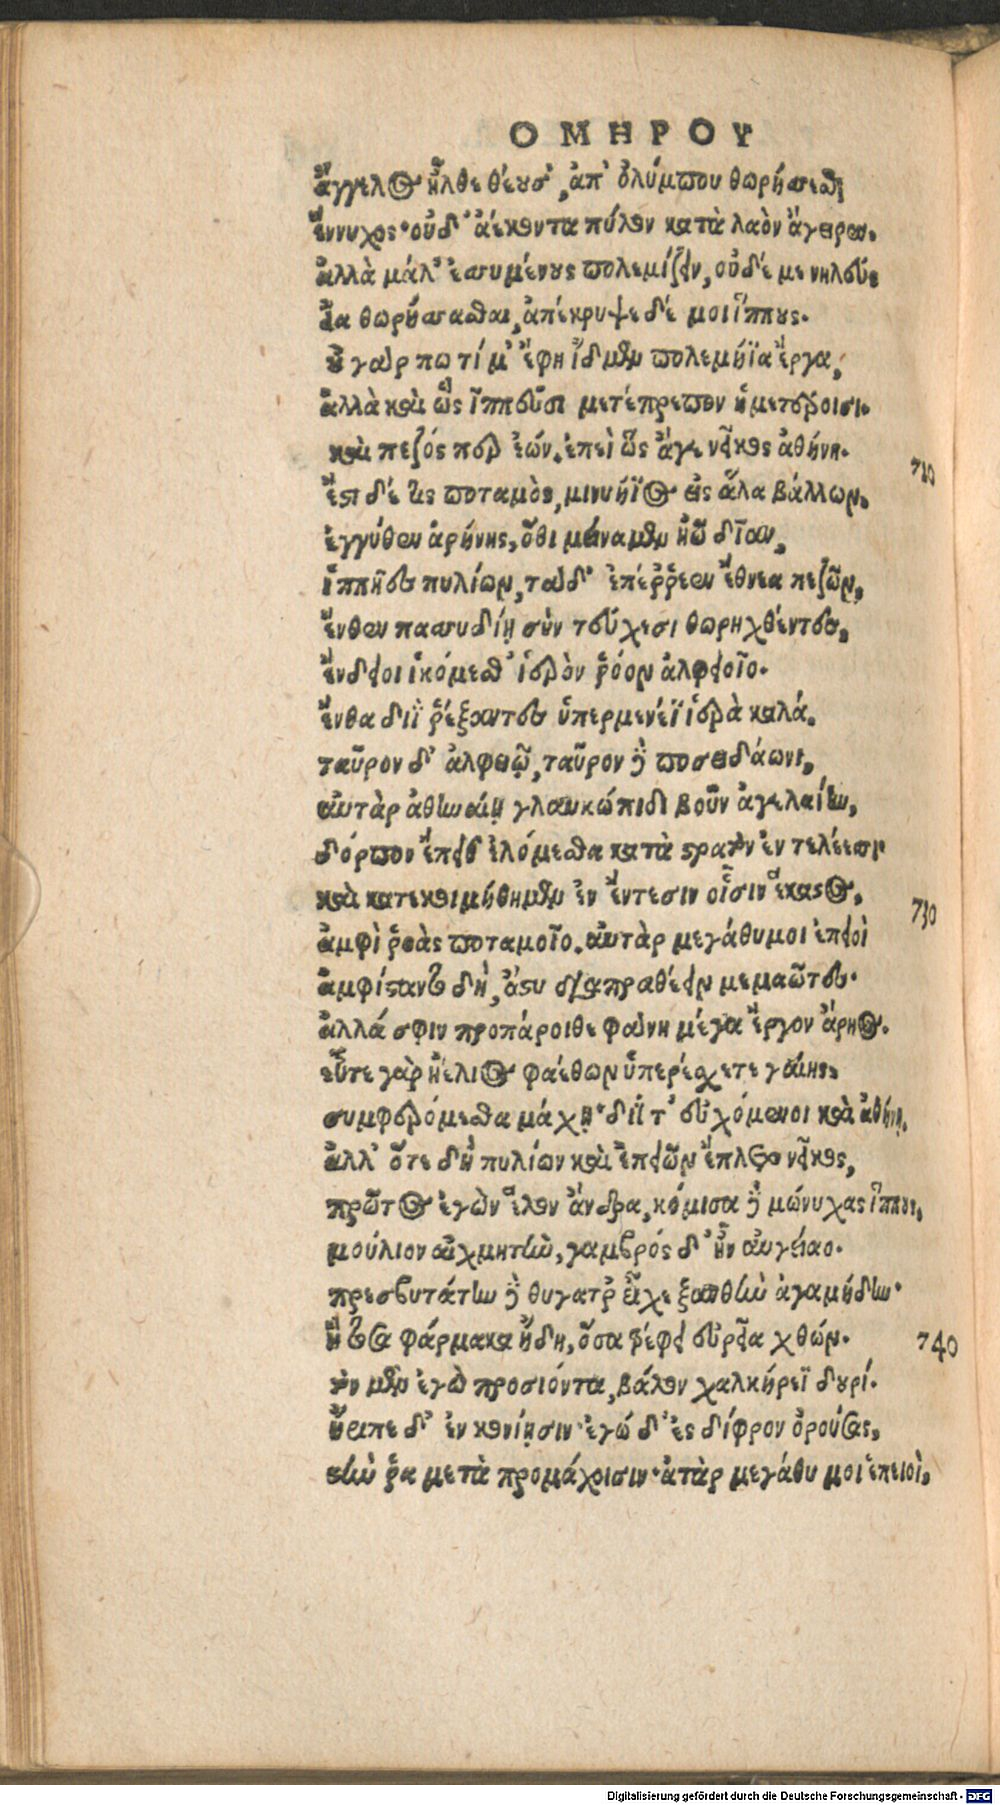 ΟΜΗΡΟΥ
ἄγγελος ἦλθε θέουσ', ἀπ' ὀλύμπου θωρήσσεσθαι
ἔννυχος· οὐδ' ἀέκοντα πύλον κατὰ λαὸν ἄγειρεν.
ἀλλὰ μάλ' ἐσσυμένους πολεμίζειν, οὐδέ με νηλεὺς
εἴα θωρήσσεσθαι, ἀπέκρυψε δέ μοι ἵππους.
οὐ γάρ πω τί μ' ἔφη ἴδμεν πολεμήϊα ἔργα,
ἀλλὰ καὶ ὣς ἱππεῦσι μετέπρεπον ἡμετέροισι.
καὶ πεζός περ ἐών. ἐπεὶ ὣς ἄγε νεῖκος ἀθήνη.
ἔστι δέ τις ποταμὸς, μινυήϊος εἰς ἅλα βάλλων, 710
ἐγγύθεν ἀρήνης, ὅθι μείναμεν ἠῶ δῖαν,
ἱππῆες πυλίων, τὰ δ' ἐπέρρεεν ἔθνεα πεζῶν,
ἔνθεν πασσυδίῃ σὺν τεύχεσι θωρηχθέντες,
ἔνδειοι ἱκόμεσθ' ἱερὸν ῥόον ἀλφειοῖο.
ἔνθα διῒ ῥέξαντες ὑπερμενέϊ ἱερὰ καλά.
ταῦρον δ' ἀλφειῷ, ταῦρον δὲ ποσειδάωνι,
αὐτὰρ ἀθηναίῃ γλαυκώπιδι βοῦν ἀγελαίην,
δόρπον ἔπειθ' ἑλόμεσθα κατὰ στρατὸν ἐν τελέεσσι
καὶ κατεκοιμήθημεν ἐν ἔντεσιν οἷσιν ἕκαστος, 730
ἀμφὶ ῥοὰς ποταμοῖο. αὐτὰρ μεγάθυμοι ἐπειοὶ
ἀμφίσταντο δὴ, ἄστυ διαπραθέειν μεμαῶτες.
ἀλλά σφιν προπάροιθε φάνη μέγα ἔργον ἄρηος.
εὖτε γὰρ ἠέλιος φαέθων ὑπερέσχετε γαίης,
συμφερόμεσθα μάχῃ· διΐ τ' εὐχόμενοι καὶ ἀθήνῃ.
ἀλλ' ὅτε δὴ πυλίων καὶ ἐπειῶν ἔπλετο νεῖκος,
πρῶτος ἐγὼν ἕλον ἄνδρα, κόμισα δὲ μώνυχας ἵππους,
μούλιον αἰχμητὴν, γαμβρός δ' ἦν αὐγείαο.
πρεσβυτάτην δὲ θυγατρ' εἶχε ξανθὴν ἀγαμήδην·
ἣ τόσα φάρμακα ᾔδη, ὅσα τρέφει εὐρεῖα χθών. 740
τὸν μὲν ἐγὼ προσιόντα, βάλον χαλκήρεϊ δουρί.
ἤριπε δ' ἐν κονίῃσιν· ἐγώ δ' ἐς δίφρον ὀρούσας,
στὴν ῥα μετὰ προμάχοισιν· ἀτὰρ μεγάθυμοι ἐπειοὶ,
Digitalisierung gefördert durch die Deutsche Forschungsgemeinschaft - DFG